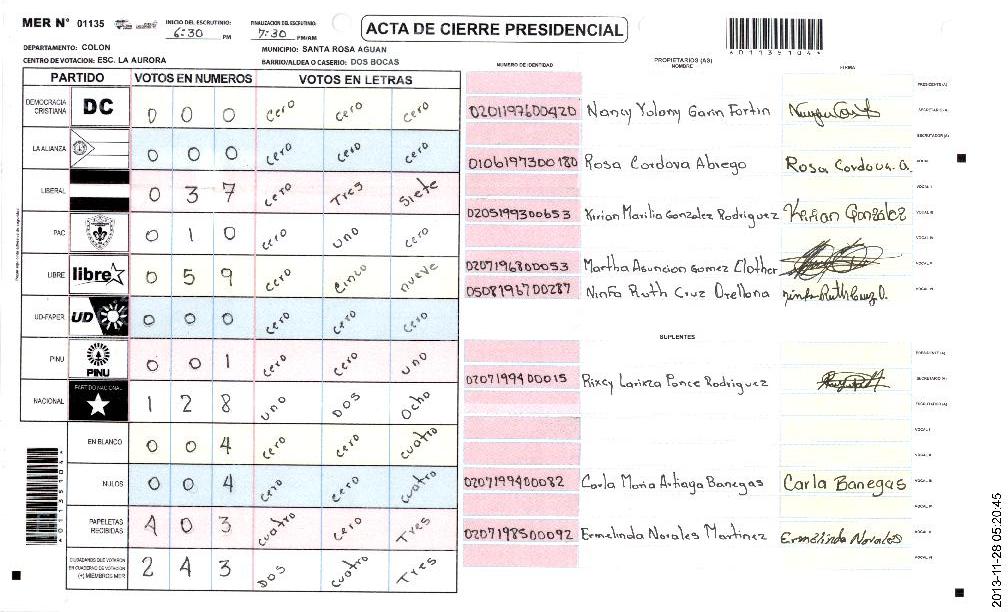 MER N° 01135
INICIO DEL ESCRUTINIO: 6:30 PM
FINALIZACION DEL ESCRUTINIO: 7:30 PM/AM
ACTA DE CIERRE PRESIDENCIAL
DEPARTAMENTO: COLON
MUNICIPIO: SANTA ROSA AGUAN
CENTRO DE VOTACION: ESC. LA AURORA
BARRIO/ALDEA O CASERIO: DOS BOCAS
PARTIDO VOTOS EN NUMEROS VOTOS EN LETRAS
DEMOCRACIA CRISTIANA DC 0 0 0 Cero Cero Cero
LA ALIANZA 0 0 0 Cero Cero Cero
LIBERAL 0 3 7 Cero Tres Siete
PAC 0 1 0 Cero uno Cero
LIBRE libre 0 5 9 Cero Cinco nueve
UD-FAPER UD 0 0 0 Cero Cero Cero
PINU PINU 0 0 1 Cero Cero uno
NACIONAL PARTIDO NACIONAL 1 2 8 uno Dos Ocho
EN BLANCO 0 0 4 Cero Cero Cuatro
NULOS 0 0 4 Cero Cero Cuatro
PAPELETAS RECIBIDAS 4 0 3 Cuatro Cero Tres
CIUDADANOS QUE VOTARON EN CUADERNO DE VOTACION (+) MIEMBROS MER 2 4 3 Dos Cuatro Tres
NUMERO DE IDENTIDAD PROPIETARIOS (AS) NOMBRE FIRMA
PRESIDENTE (A)
0201197600420 Nancy Yolany Garin Fortin SECRETARIO (A)
ESCRUTADOR (A)
0106197300180 Rosa Cordova Abrego Rosa Cordova. A.
VOCAL I
0205199300653 Kirian Marilia Gonzalez Rodriguez Kirian González
0207196800053 Martha Asuncion Gomez Clother
0508196700287 Ninfa Ruth Cruz Orellana
SUPLENTES
PRESIDENTE (A)
0207199400015 Rixcy Larixza Ponce Rodriguez SECRETARIO (A)
ESCRUTADOR (A)
VOCAL I
0207199400082 Carla Maria Artiaga Banegas Carla Banegas
0207198500092 Ermelinda Norales Martinez Ermelinda Norales
2013-11-28 05:20:45